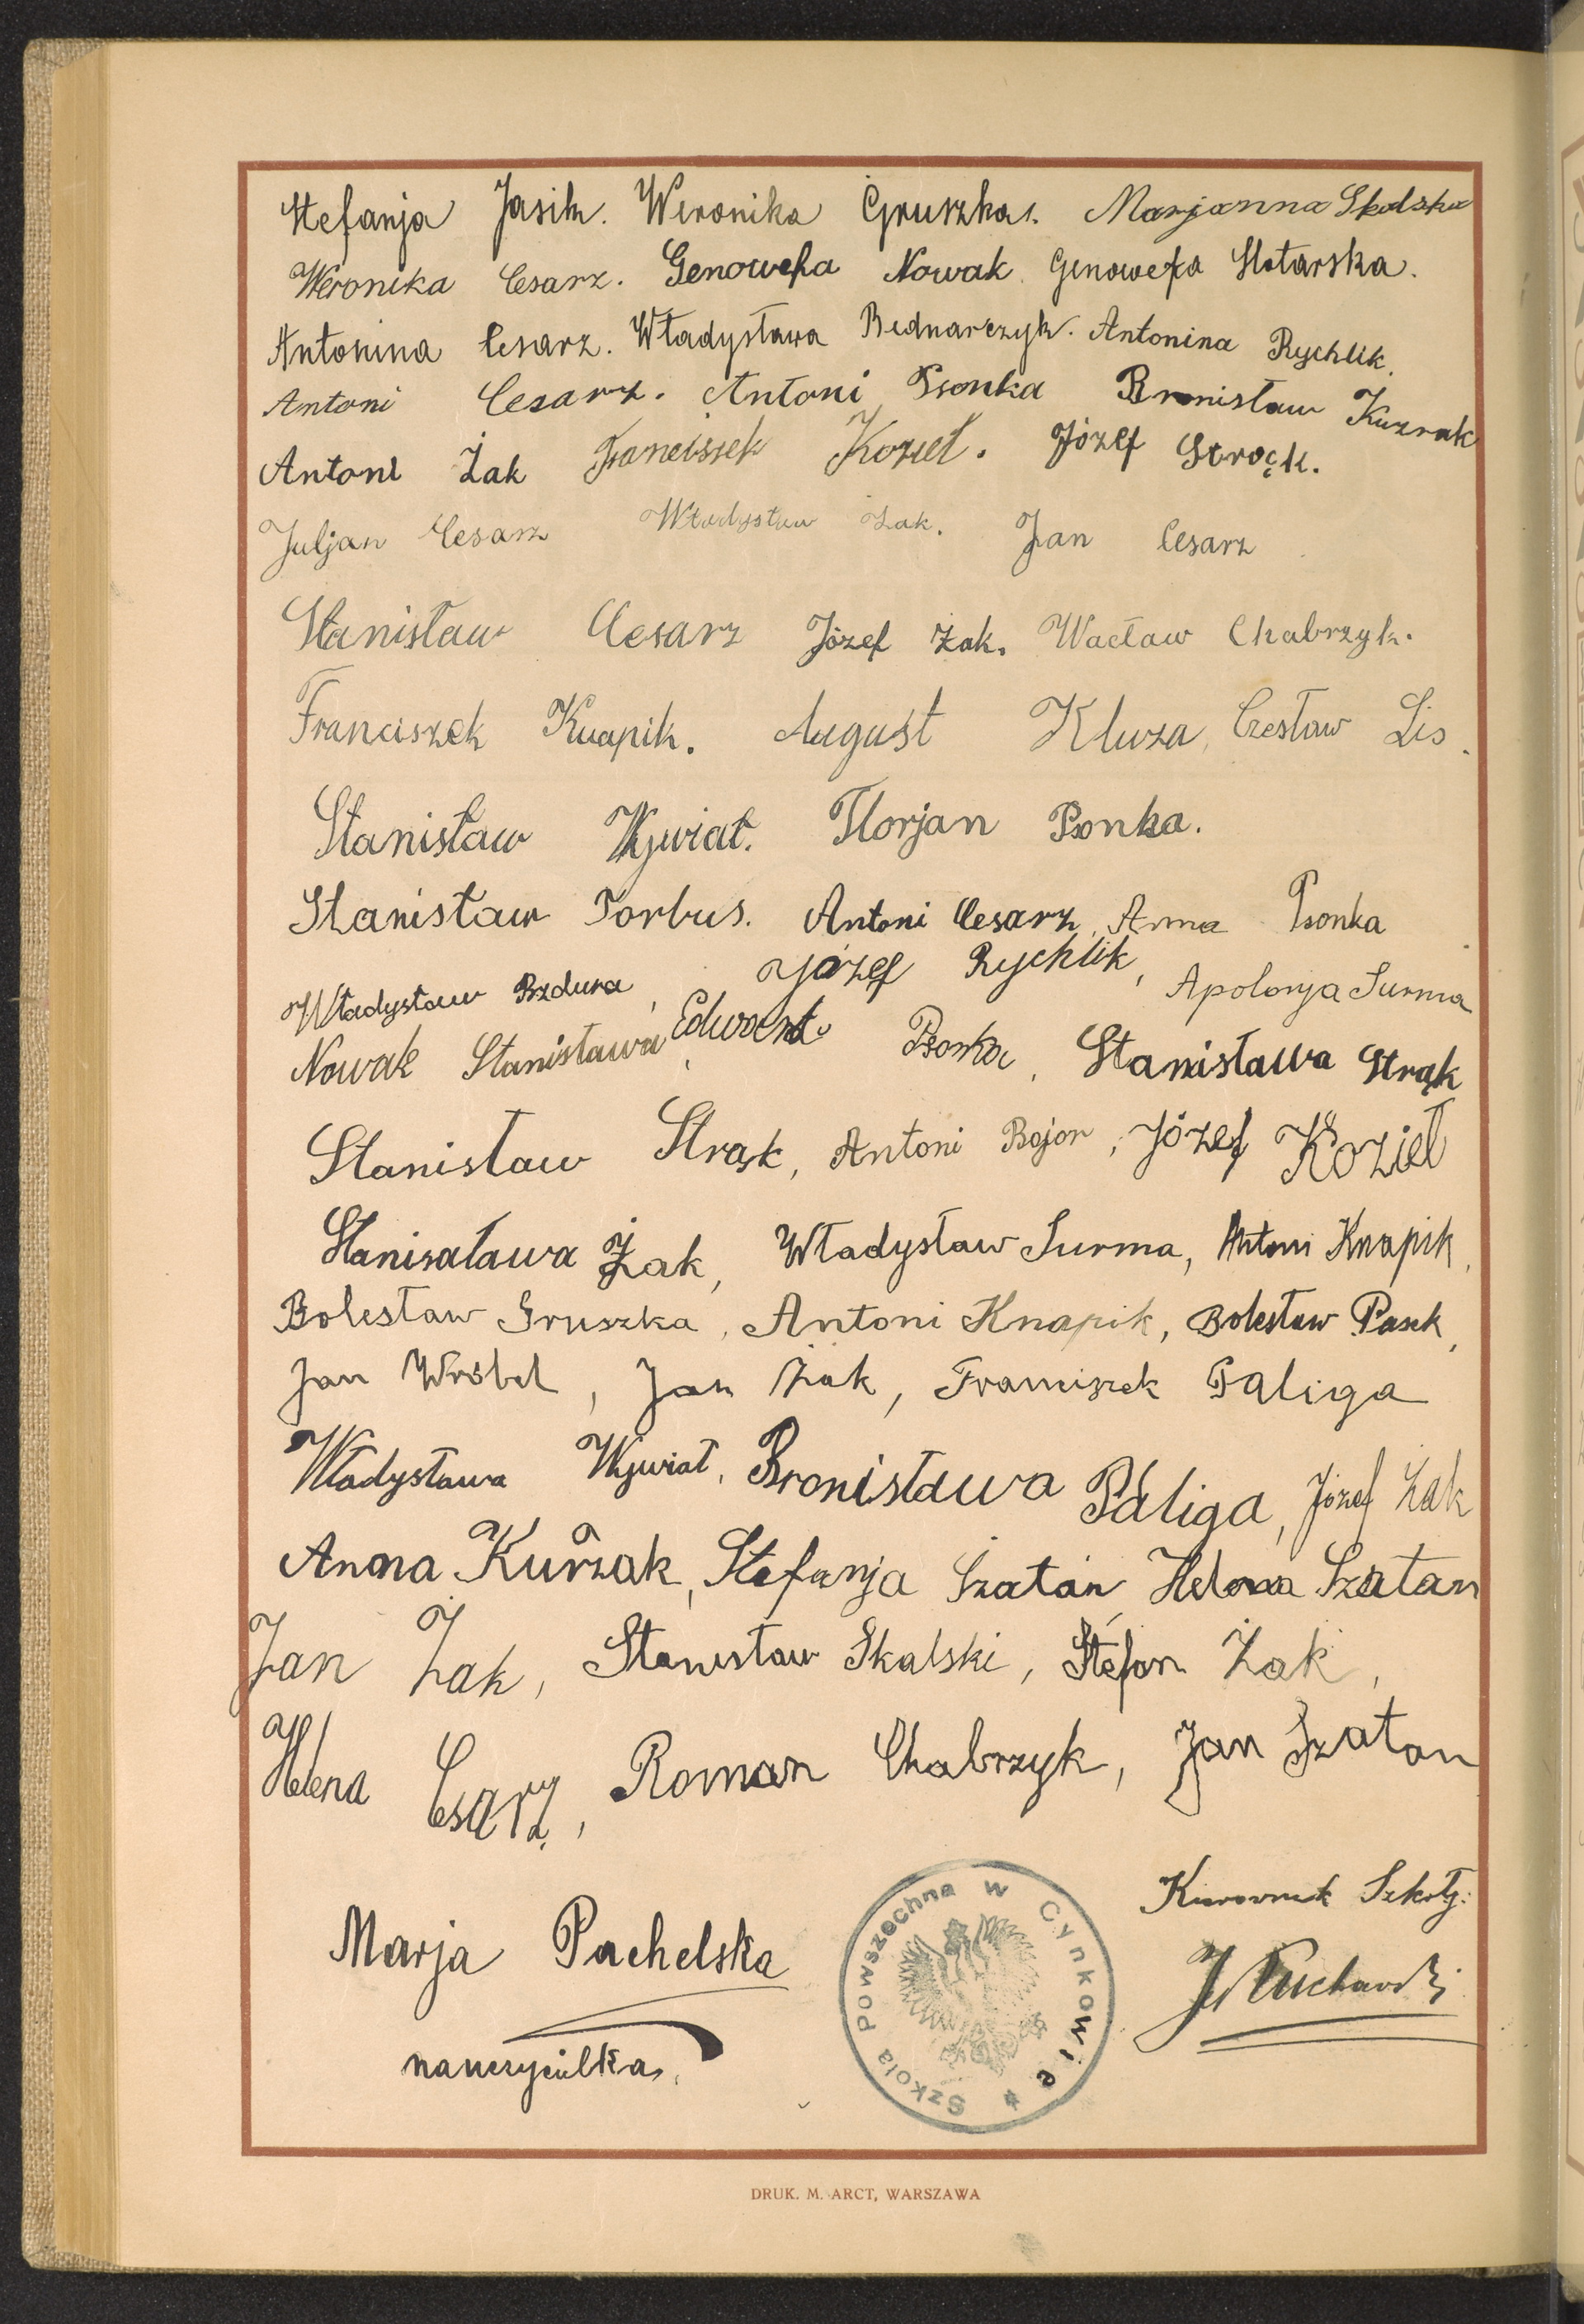 Stefanja Jasik. Weronika Gruszka. Marjanna Skalska
Weronika Cesarz. Genowefa Nowak. Genowefa Stotarska.
Antonina Cesarz. Władysława Bednarczyk. Antonina Rychlik.
Antoni Cesarz. Antoni Psonka Bronisław Kurzak
Antoni Żak Franciszek Kozieł. Józef
Juljan Cesarz Władysław Żak. Jan Cesarz
Stanisław Cesarz Józef Żak. Wacław Chabrzyk.
Franciszek Knapik. August Kluza, Czesław Lis.
Stanisław Kwiat. Florjan Psonka.
Stanisław Torbus. Antoni Cesarz, Anna Psonka
Władysław Bzdura, Józef Rychlik, Apolonja Surma
Nowak Stanisława, Edward Psonka, Stanisława Strąk
Stanisław Strąk, Antoni Bojor, Józef Kozieł
Stanisaława Żak, Władysław Surma, Antoni Knapik,
Bolesław Gruszka, Antoni Knapik, Bolesław Pasek,
Jan Wróbel, Jan Żak, Franciszek Paliga
Władysława Kwiat, Bronisława Paliga, Józef Żak
Anna Kurzak, Stefanja Szatan Helena Szatan
Jan Żak, Stanisław Skalski, Stefan Żak,
Helena Cesarz, Roman Chabrzyk, Jan Szatan
Kierownik Szkoły:
Marja Pachelska
nauczycielka.
Szkoła Powszechna w Cynkowie
DRUK. M. ARCT, WARSZAWA